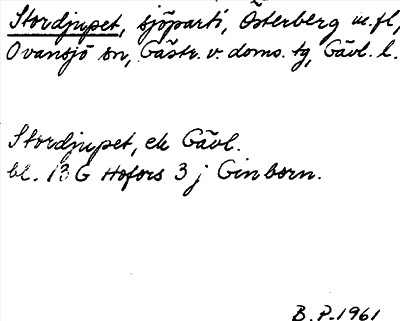 Stordjupet, sjöparti, Österberg m.fl,
Ovansjö sn, Gästr. v. doms. tg, Gävl. l.
Stordjupet, ek Gävl.
bl. 13G Hofors 3 j Ginborn.
B.P.1961